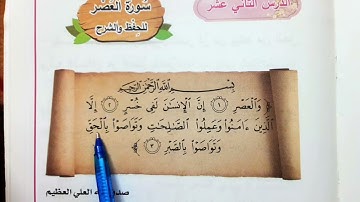 الدرس الثاني عشر
سُورَةُ الْعَصْر
للحِفظِ والشرح
بِسْمِ اللَّهِ الرَّحْمَٰنِ الرَّحِيمِ
﴿ وَالْعَصْرِ ۝١ إِنَّ الْإِنسَٰنَ لَفِى خُسْرٍ ۝٢ إِلَّا
الَّذِينَ ءَامَنُوا۟ وَعَمِلُوا۟ الصَّٰلِحَٰتِ وَتَوَاصَوْا۟ بِالْحَقِّ
وَتَوَاصَوْا۟ بِالصَّبْرِ ۝٣ ﴾
العلي العظيم